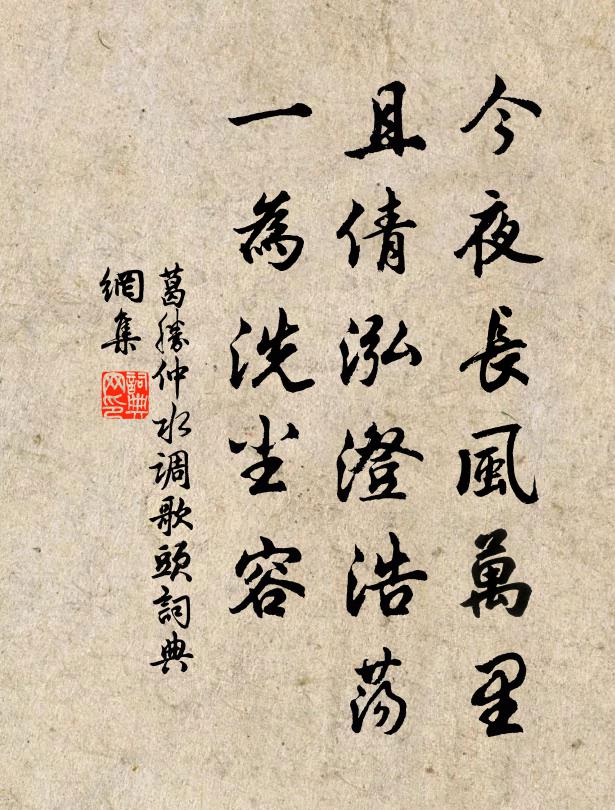 今夜長風萬里
且倩泓澄浩蕩
一為洗尘容
葛勝仲水調歌頭詞典
網集
詞典网印